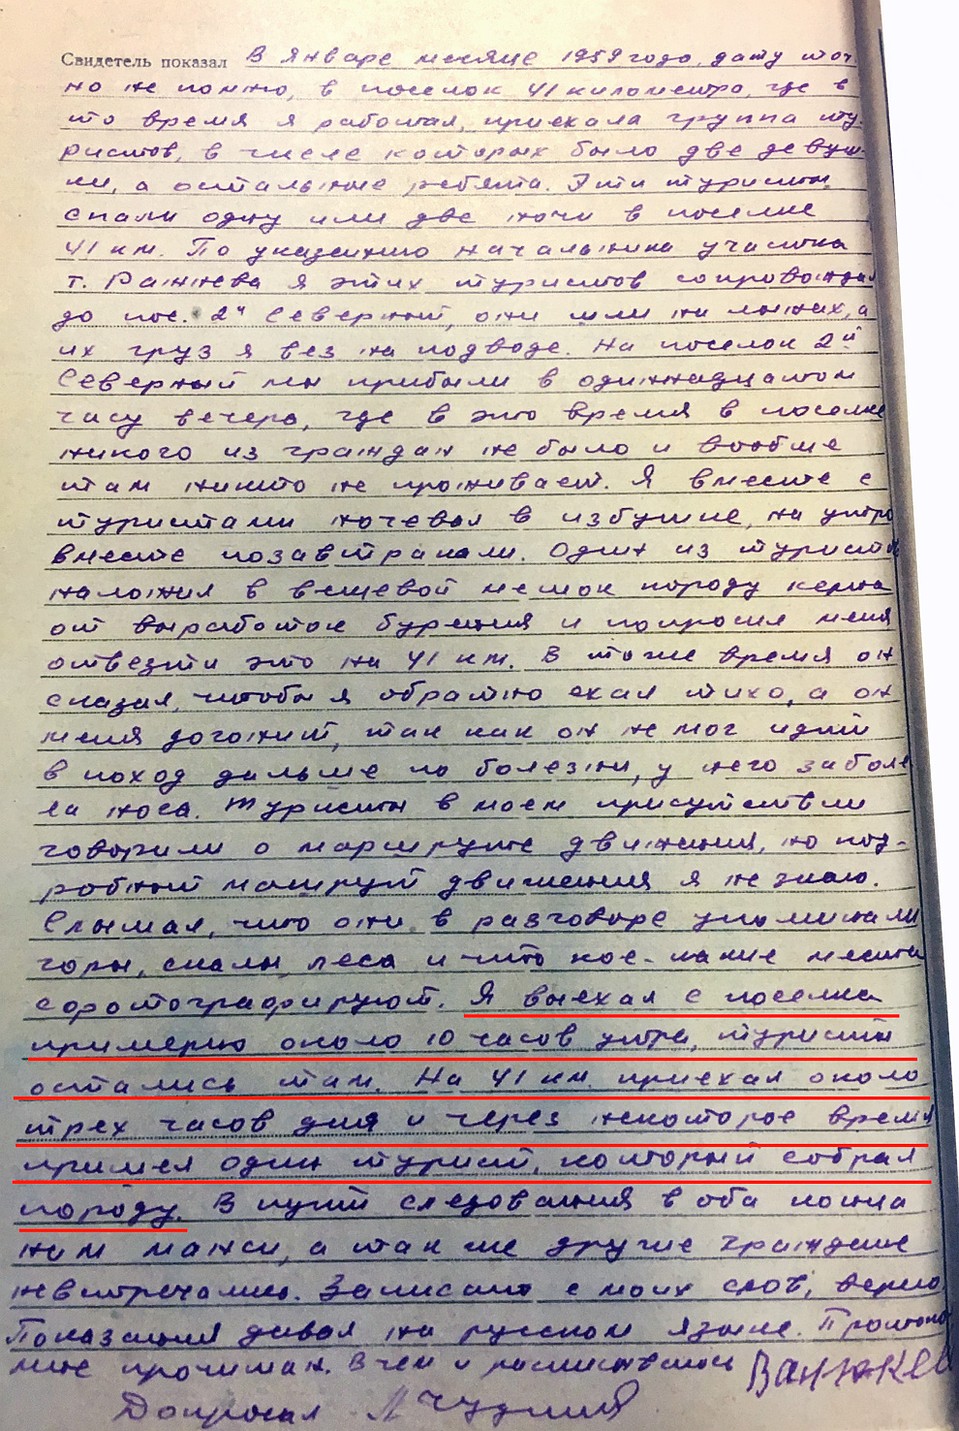 Свидетель показал В январе месяце 1959 года, дату точ-
но не помню, в поселок 41 километра, где в
то время я работал, приехала группа ту-
ристов, в числе которых было две девуш-
ки, а остальные ребята. Эти туристы
спали одну или две ночи в поселке
41 км. По указанию начальника участка
т. Ражнева я этих туристов сопровождал
до пос. 2й Северный, они шли на лыжах, а
их груз я вез на подводе. На поселок 2й
Северный мы прибыли в одиннадцатом
часу вечера, где в это время в поселке
никого из граждан не было и вообще
там никто не проживает. Я вместе с
туристами ночевал в избушке, на утро
вместе позавтракали. Один из туристов
наложил в вещевой мешок породу керна
от выработок бурения и попросил меня
отвезти это на 41 км. В тоже время он
сказал, чтобы я обратно ехал тихо, а он
меня догонит, так как он не мог идти
в поход дальше по болезни, у него заболе-
ла нога. Туристы в моем присутствии
говорили о маршруте движения, но под-
робный маршрут движения я не знаю.
Слышал, что они в разговоре упоминали
горы, скалы, леса и что кое-какие места
сфотографируют. Я выехал с поселка
примерно около 10 часов утра, туристы
остались там. На 41 км приехал около
трех часов дня и через некоторое время
пришел один турист, который собрал
породу. В пути следования в оба конца
нам манси, а так же другие граждане
невстречались. Записано с моих слов, верно
Показания давал на русском языке. Протокол
мне прочитан. В чем и расписываюсь Валюкев
Допросил Чудинов